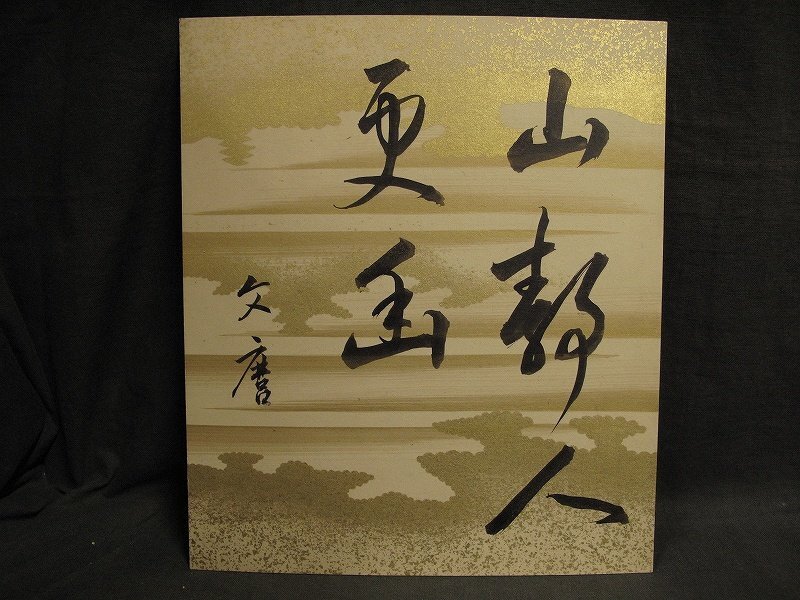 山静人
更幽
文麿